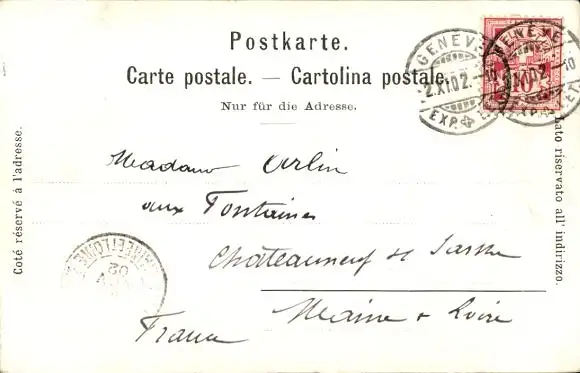 Postkarte.
Carte postale. — Cartolina postale.
Nur für die Adresse.
Coté réservé à l'adresse.
Lato riservato all' indirizzo.
GENEVE
2.XI.02.-10
EXP.
GENEVE
XI.02 -10
EXP.
10
Madame Arlin
aux Fontaines
Châteauneuf s/ Sarthe
Maine & Loire
France
02